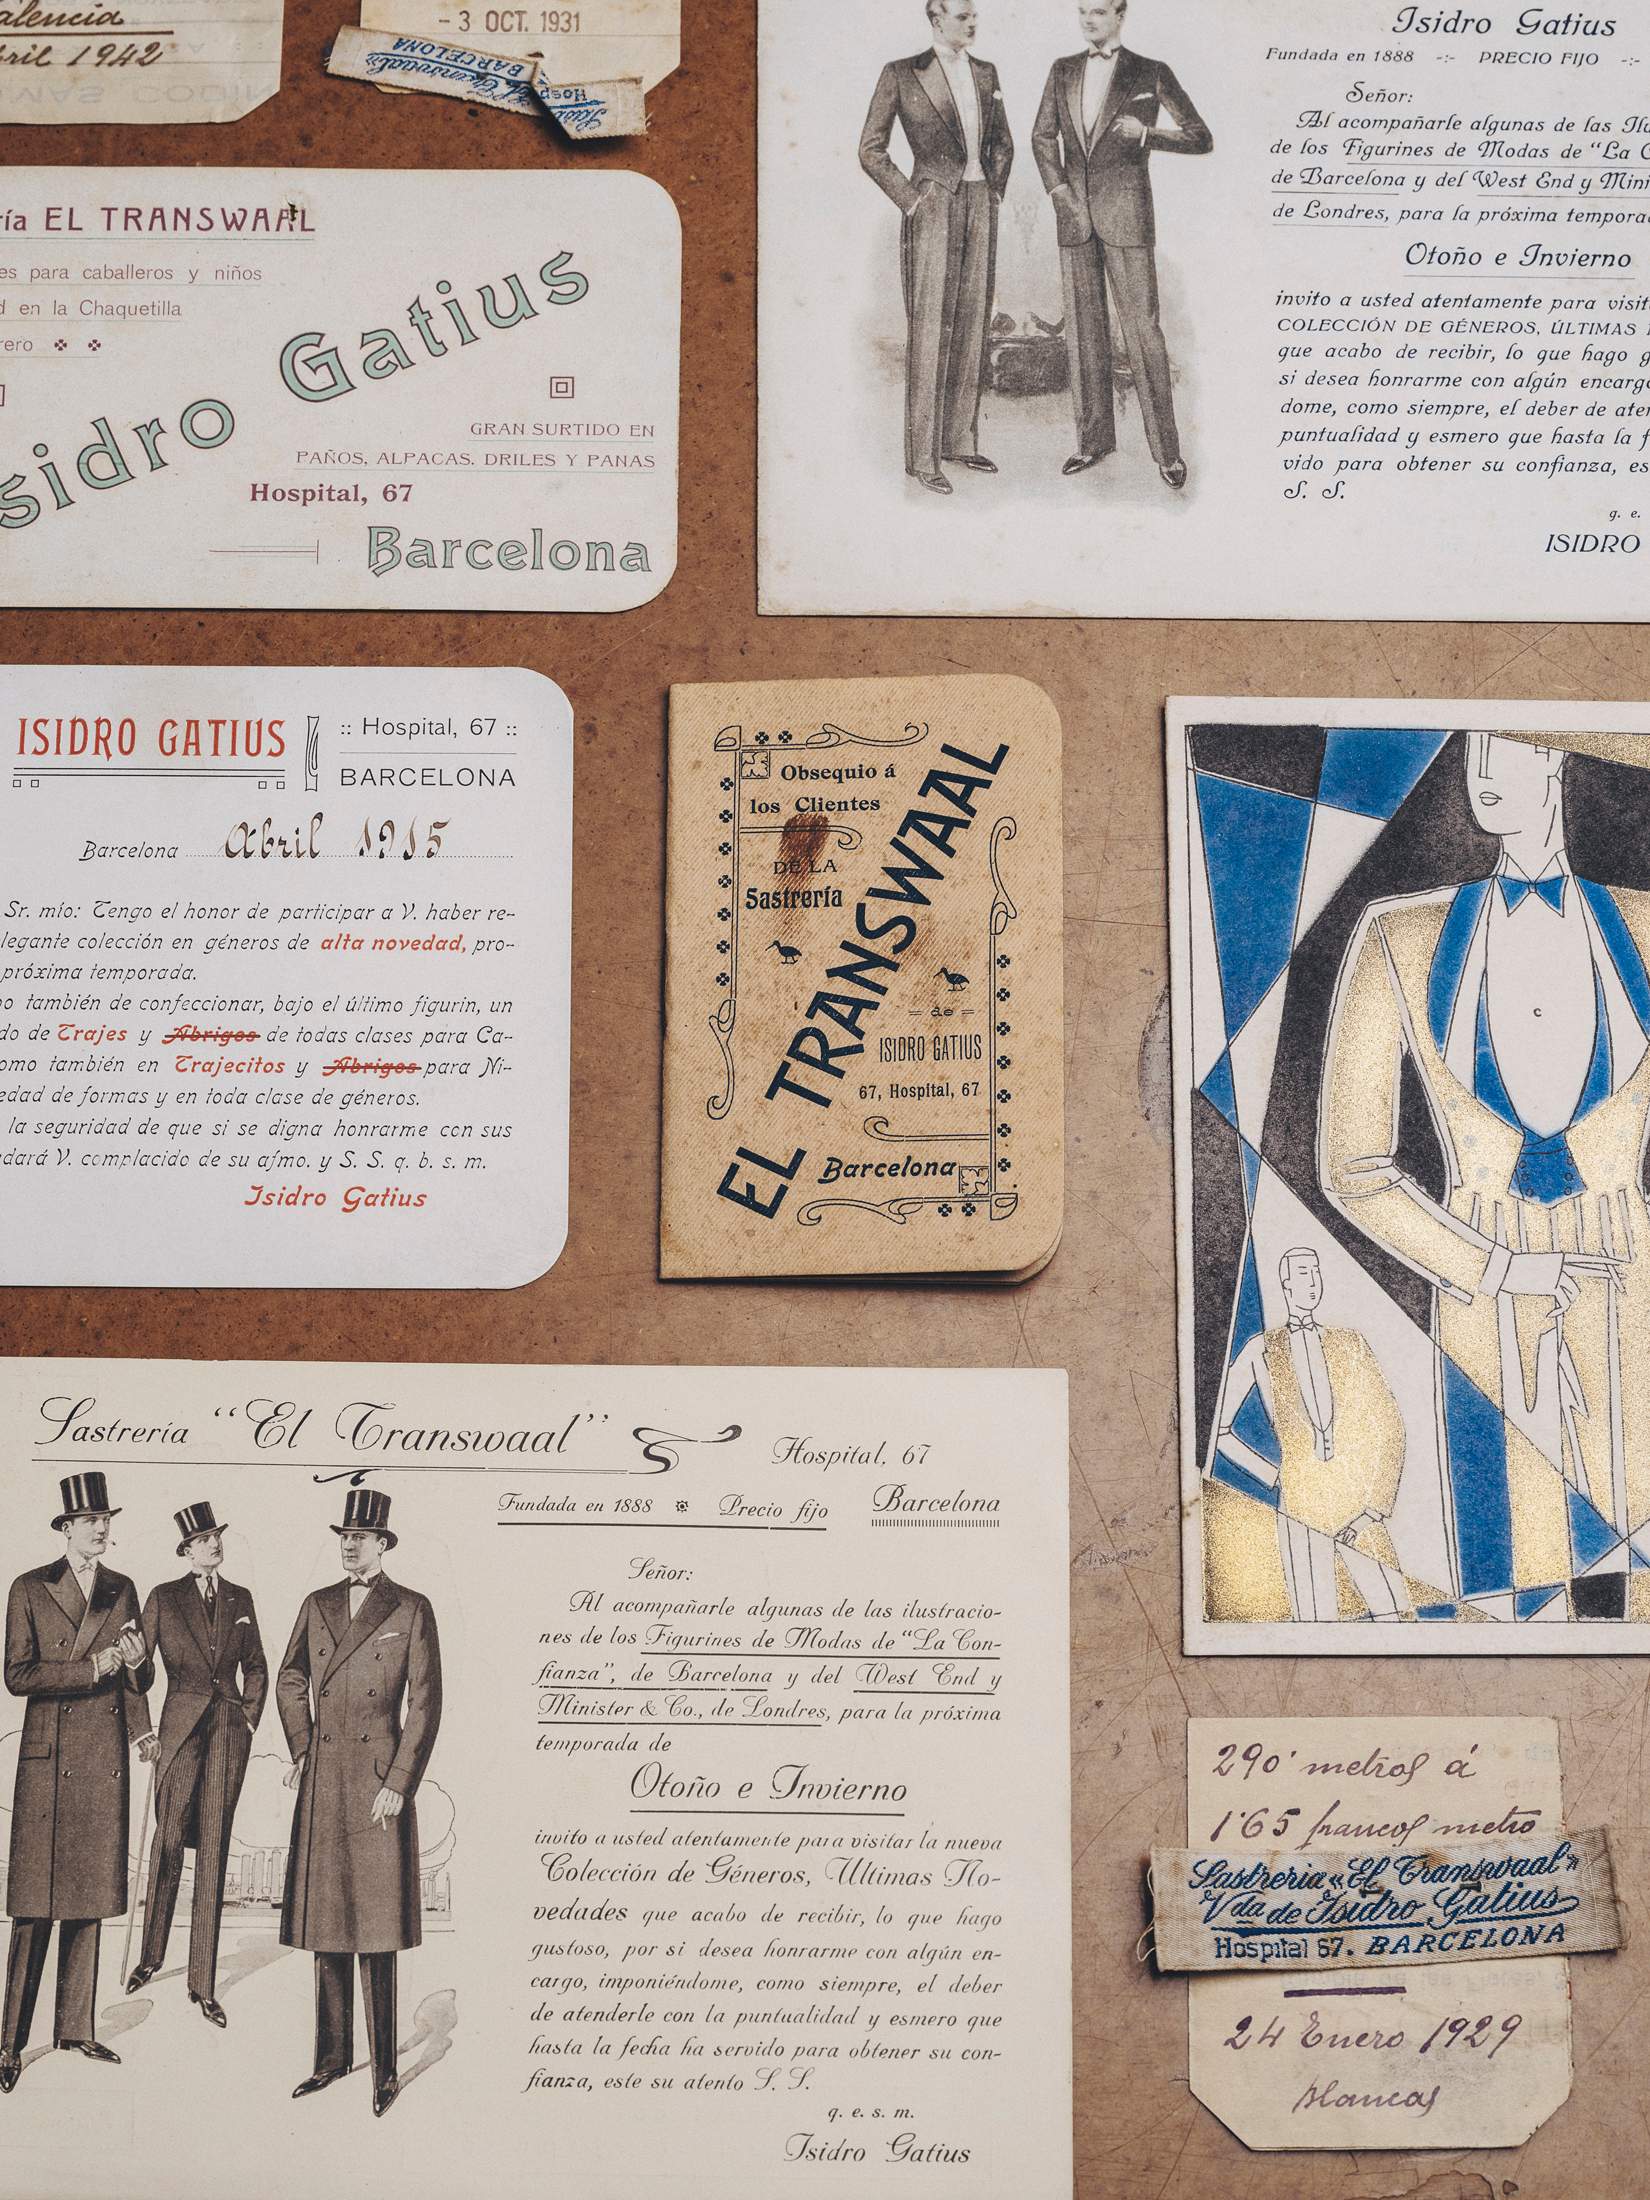 alencia
ril 1942
- 3 OCT. 1931
Hospital
BARCELONA
ría EL TRANSWAAL
es para caballeros y niños
d en la Chaquetilla
rero
sidro Gatius
GRAN SURTIDO EN
PAÑOS, ALPACAS. DRILES Y PANAS
Hospital, 67
Barcelona
Isidro Gatius
Fundada en 1888 -:- PRECIO FIJO -:-
Señor:
Al acompañarle algunas de las Ilu
de los Figurines de Modas de “La C
de Barcelona y del West End y Mini
de Londres, para la próxima tempora
Otoño e Invierno
invito a usted atentamente para visit
COLECCIÓN DE GÉNEROS, ÚLTIMAS
que acabo de recibir, lo que hago g
si desea honrarme con algún encarg
dome, como siempre, el deber de ate
puntualidad y esmero que hasta la f
vido para obtener su confianza, es
S. S.
q. e.
ISIDRO
ISIDRO GATIUS
:: Hospital, 67 ::
BARCELONA
Barcelona Abril 1915
Sr. mío: Tengo el honor de participar a V. haber re-
legante colección en géneros de alta novedad, pro-
próxima temporada.
o también de confeccionar, bajo el último figurín, un
do de Trajes y Abrigos de todas clases para Ca-
omo también en Trajecitos y Abrigos para Ni-
edad de formas y en toda clase de géneros.
la seguridad de que si se digna honrarme con sus
dará V. complacido de su afmo. y S. S. q. b. s. m.
Isidro Gatius
Obsequio á
los Clientes
DE LA
Sastrería
EL TRANSWAAL
= de =
ISIDRO GATIUS
67, Hospital, 67
Barcelona
C
Sastrería “El Transwaal”
Hospital, 67
Fundada en 1888 Precio fijo
Barcelona
Señor:
Al acompañarle algunas de las ilustracio-
nes de los Figurines de Modas de “La Con-
fianza”, de Barcelona y del West End y
Minister & Co., de Londres, para la próxima
temporada de
Otoño e Invierno
invito a usted atentamente para visitar la nueva
Colección de Géneros, Ultimas No-
vedades que acabo de recibir, lo que hago
gustoso, por si desea honrarme con algún en-
cargo, imponiéndome, como siempre, el deber
de atenderle con la puntualidad y esmero que
hasta la fecha ha servido para obtener su con-
fianza, este su atento S. S.
q. e. s. m.
Isidro Gatius
290' metros á
1'65 francos metro
Sastreria «El Transwaal»
Vda de Isidro Gatius
Hospital 67. BARCELONA
24 Enero 1929
blancas